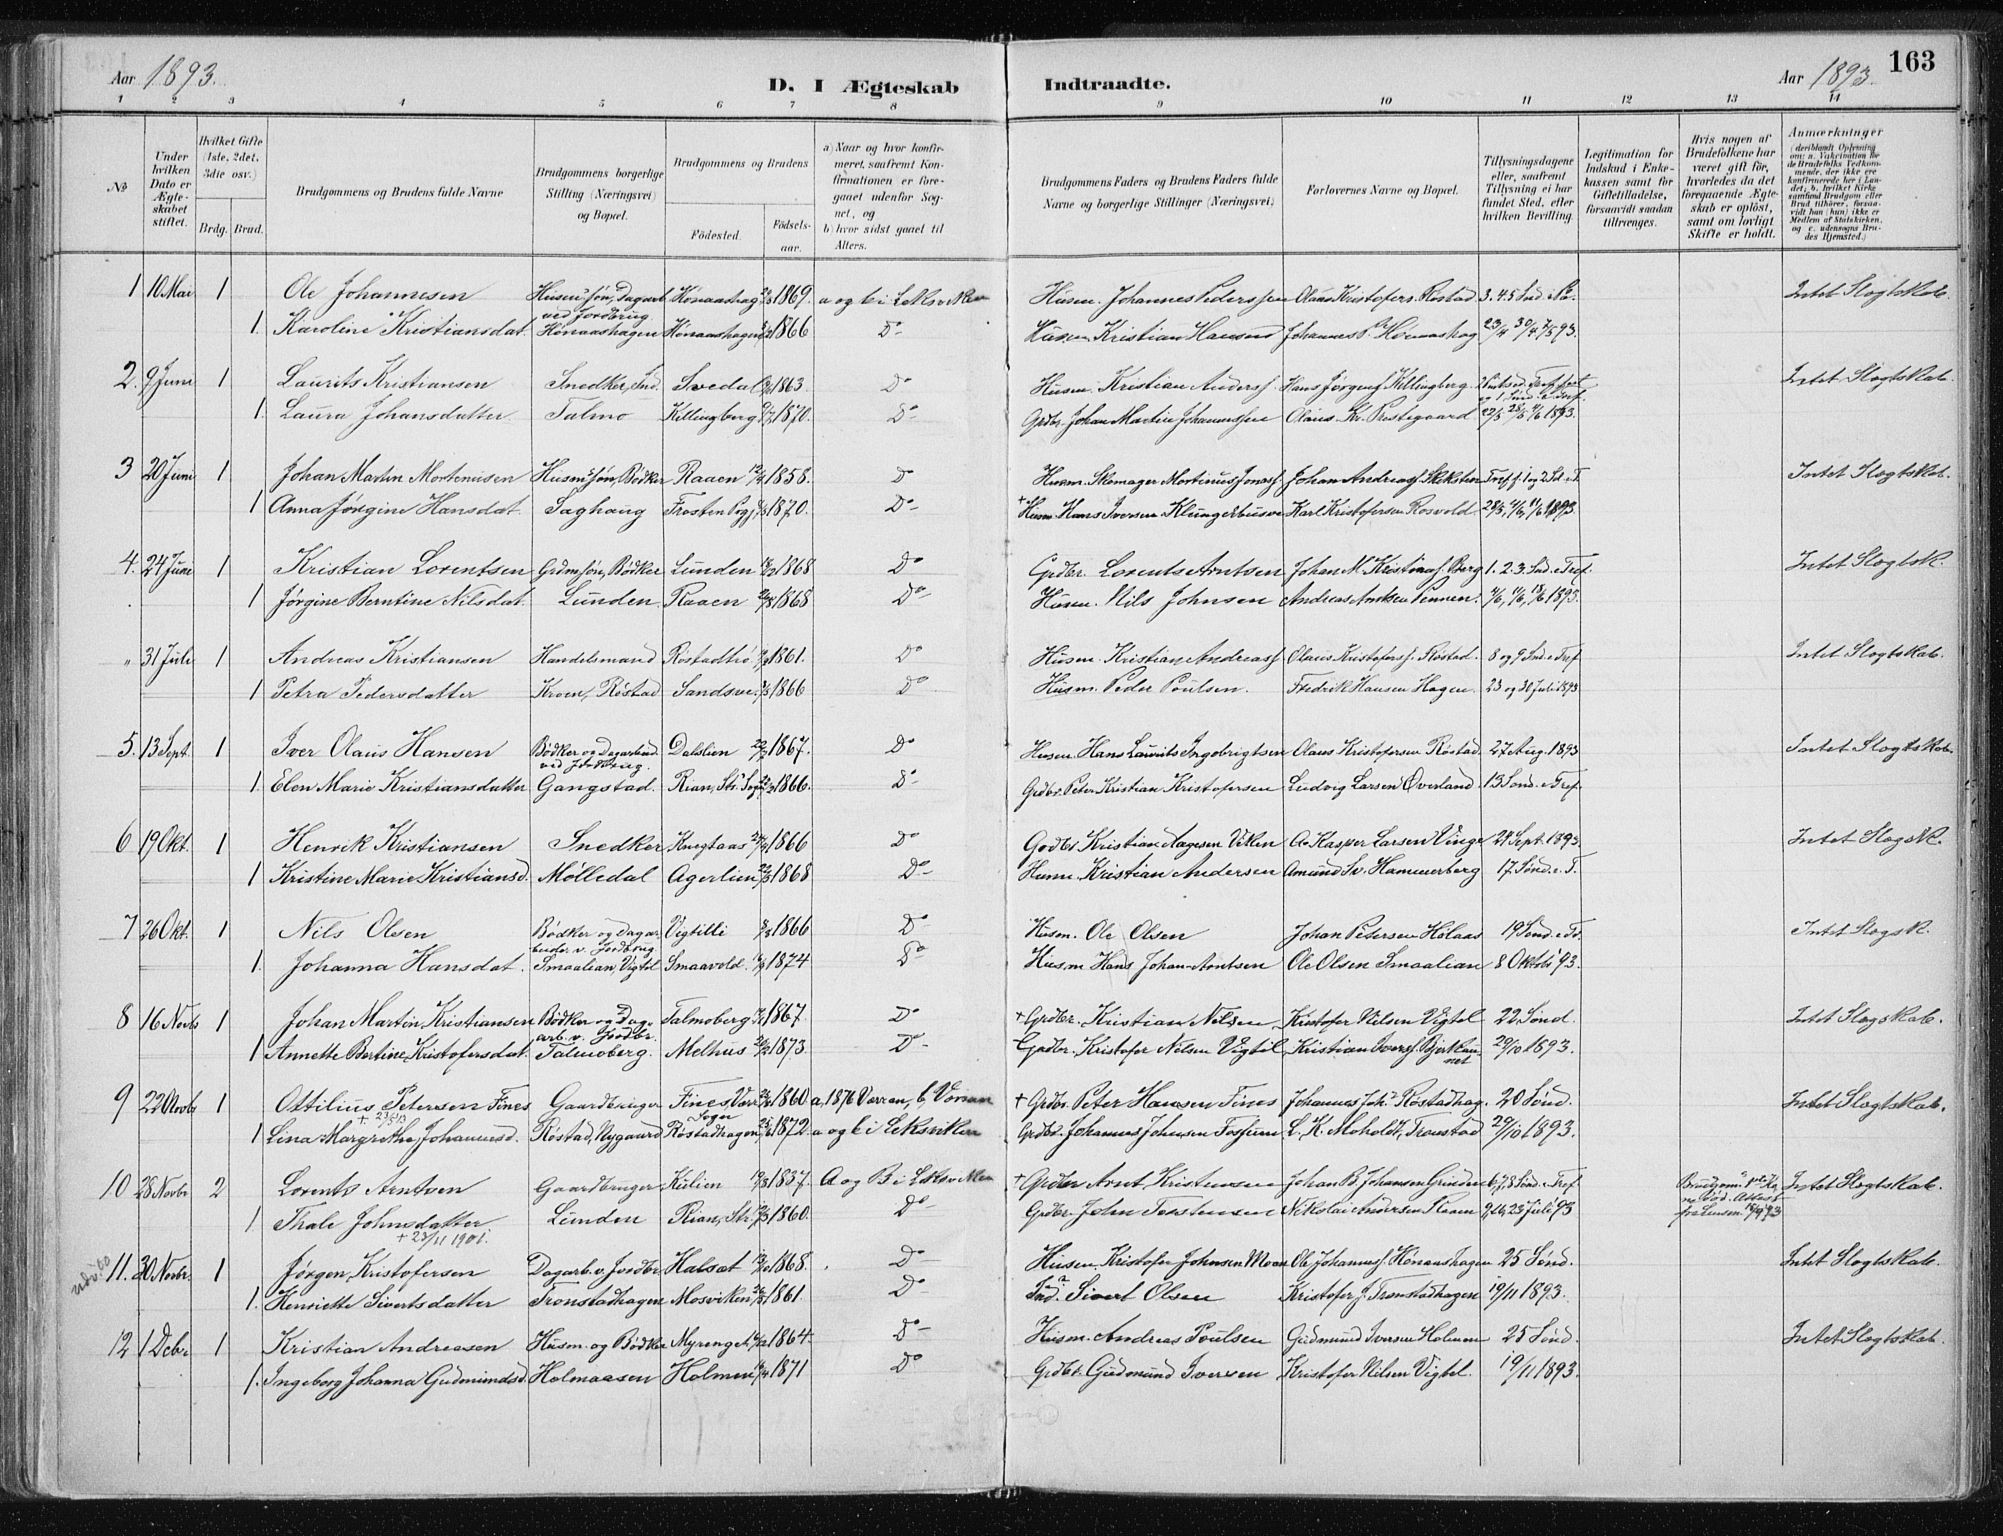 Aar 1893.
D. I Ægteskab
Indtraadte.
Aar 1893.
163
1 2 3 4 5 6 7 8 9 10 11 12 13 14
No
Under hvilken Dato er Ægte-skabet stiftet.
Hvilket Gifte (1ste, 2det, 3die osv.)
Brdg. Brud.
Brudgommens og Brudens fulde Navne
Brudgommens borgerlige Stilling (Næringsvei) og Bopæl.
Brudgommens og Brudens
Fødested.
Fødsels-aar.
a) Naar og hvor konfir-meret, saafremt Kon-firmationen er fore-gaaet udenfor Sog-net, og
b) hvor sidst gaaet til Alters.
Brudgommens Faders og Brudens Faders fulde Navne og borgerlige Stillinger (Næringsvei)
Forlovernes Navne og Bopæl.
Tillysningsdagene eller, saafremt Tillysning ei har fundet Sted, efter hvilken Bevilling.
Legitimation for Indskud i Enke-kassen samt for Giftetilladelse, forsaavidt saadan tiltrænges.
Hvis nogen af Brudefolkene har været gift før, hvorledes da det foregaaende Ægte-skab er opløst, samt om lovligt Skifte er holdt.
Anmærkninger (deriblandt Oplysning om: a. Vakcination for de Brudefolks Vedkom-mende, der ikke ere konfirmerede her i Lan-det; b. hvilket Kirke-samfund Brudgom eller Brud tilhører, forsaa-vidt han (hun) ikke er Medlem af Statskirken, og c. udensogns Bru-des Hjemsted.)
1 10 Mai 1 Ole Johannesen Husm. Søn, Dagarb. ved Jordbrug Hønaashag 1869. a og b i Leksviken Husm. Johannes Pederssen Olaus Kristofers. Røstad 3. 4. 5 Sønd. e. Paa. Intet Slægtskab.
1 Karoline Kristiansdat. Hønaashagen Hønaashagen 1866 Do Husm. Kristian Hansen Johannes P. Hønaashag 23/4 30/4 7/5 93.
2. 9 Juni 1 Laurits Kristiansen Snedker, Ind. Svedal 1863 Do Husm. Kristian Anders. Hans Jørgens. Killingberg. Intet Slægtskab.
1 Laura Johansdatter. Talmo Killingberg 1870. Do Grdbr. Johan Martin Johannessen Olaus Kr. Prestegaard 1893.
3 20 Juni 1 Johan Martin Mortenusen Husm. Søn, Bødker Raaen 1858. Do Husm. Skomager Mortinus Jonas. Johan Andreas. Intet Slægtskab.
1 Anna Jørgine Hansdat. Saghaug Frosten 1870. Do + Husm. Hans Iversen Klungerhusve Karl Kristofersen Rosvold. 1893.
4. 24 Juni 1 Kristian Lorentsen Grdm. Søn, Bødker Lunden 1868 Do Grdbr. Lorents Arntsen Johan M. Kristians. Berg 1. 2. 3. Sønd. e. Tref. Intet Slægtsk.
1 Jørgine Berntine Nilsdat. Lunden Raaen 1868 Do Husm. Nils Johnsen Andreas Arntsen 4/6, 11/6, 18/6 1893.
" 31 Juli 1 Andreas Kristiansen Handelsmand Røstadtrø 1861. Do Husm. Kristian Andreas. Olaus Kristofers. Røstad. 8 og 9 Sønd. e. Tref Intet Slægtskab.
1 Petra Pedersdatter Kroen, Røstad Sandsve. 1866 Do Husm. Peder Poulsen. Fredrik Hansen Hagen. 23 og 30 Juli 1893
5. 13 Sept. 1 Iver Olaus Hansen Bødker og Dagarbeid. ved Jordbrug. Dalslien 1867. Do Husm. Hans Laurits Ingebrigtsen Olaus Kristofersen Røstad. 27 Aug. 1893 Intet Slægtskab.
1. Elen Marie Kristiansdatter Gangstad. Rian, Str. Sogn 1866. Do Grdbr. Peter Kristian Kristofersen Ludvig Larsen Øverland 13 Sønd. e. Tref.
6 19 Okt. 1 Henrik Kristiansen Snedker Knegtaas 1866 Do Grdbr. Kristian Aagesen Viken Kasper Larsen Vinge 24 Sept. 1893. Intet Slægsk.
1 Kristine Marie Kristiansd. Mølledal Agerlien 1868 Do Husm. Kristian Andersen Amund Sv. Hammerberg 17. Sønd. e. T.
7 26 Okt. 1 Nils Olsen Bødker og Dagar-beider v. Jordbrug Vigtilli 1866 Do Husm. Ole Olsen Johan Petersen Hølaas 19 Sønd. e. Tr. Intet Slægsk.
1. Johanna Hansdat. Smaalian, Vigtil Smaavold. 1874 Do Husm. Hans Johan Arntsen Ole Olsen Smaalian 8 Oktobr 93.
8 16 Novbr 1 Johan Martin Kristiansen Bødker og Dag-arb. v. Jordbr. Talmoberg 1867. Do + Grdbr. Kristian Nilsen Kristofer Nilsen Vigtel 22 Sønd. Intet Slægskab.
1 Annette Bertine Kristofersdat. Talmoberg. Melhus 1873. Do Grdbr. Kristofer Nilsen Vigtil Kristian Ivers. 29/10 1893.
9 22 Novbr 1 Ottilius Petersen Fines Gaardbruger Fines, Værr. Sogn 1860 a, 1876 Værran, b, Værran + Grdbr. Peter Hansen Fines Johannes Joh. Røstadhag. 20 Sønd. Intet Slægtskab.
+ 23/5 13
1 Lina Margrethe Johannesd. Røstad, Nygaard Røstadhagen 1872 a og b i Leksviken Grdbr. Johannes Johnsen Fossum L. K. Moholdt, Tronstad 29/10 1893.
10 28 Novbr 2 Lorents Arntsen Gaardbruger Kulien 1837. A og B i Leksviken + Grdbr. Arnt Kristensen Johan B. Johansen Grinden 6, 7, 8 Sønd. e. Tref Intet Slægtskab.
1 Thale Johnsdatter Lunden Rian, Str. 1860. Do Grdbr. John Torstensen Nikolai Andersen Raaen 9, 16, 23 Juli 93
+ 23/11 1901.
11. 30 Novbr. 1 Jørgen Kristofersen Dagarb. v. Jordbr. Halsat 1868. Do Husm. Kristofer Johnsen Moan Ole Johanness. Hønaashagen 25 Sønd. Intet Slægtskab.
1. Henriette Sivertsdatter Tronstadhagen Mosviken 1861. Do Ind. Sivert Olsen Kristofer J. Tronstadhagen 19/11 1893.
12 1 Debr 1 Kristian Andreasen Husm. og Bødker Myrenget 1864. Do Husm. Andreas Poulsen Gudmund Iversen Holmen 25 Sønd. Intet Slægtskab.
1. Ingeborg Johanna Gudmundsd. Holmaasen Holmen 1871 Do Grdbr. Gudmund Iversen Kristofer Nilsen Vigtel. 19/11 1893.